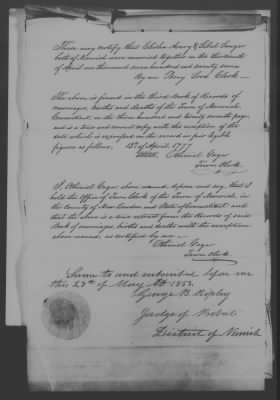 These may certify that Elisha Avery & Sibel
both of Norwich were married together on the thirteenth
of April one thousand seven hundred and seventy seven
By me Benj Lord Clerk—
The above is found in the third Book of Records of
marriages, births and deaths of the Town of Norwich,
Connecticut, on the three hundred and twenty seventh page,
and is a true and correct copy with the exception of the
date which is expressed on the record in fair legible
figures as follows; 13th of April. 1777
Attest, Othniel Gager
Town Clerk.
I, Othniel Gager above named, depose and say, that I
hold the Office of Town Clerk of the Town of Norwich, in
the County of New London and State of Connecticut and
that the above is a true extract from the Records of said
Book of marriages births and deaths with the exception
above named, as certified by me.—
Othniel Gager
Town Clerk.
Sworn to and subscribed before me
this 25th of May AD 1853.
George B. Ripley
Judge of Probate
District of Norwich